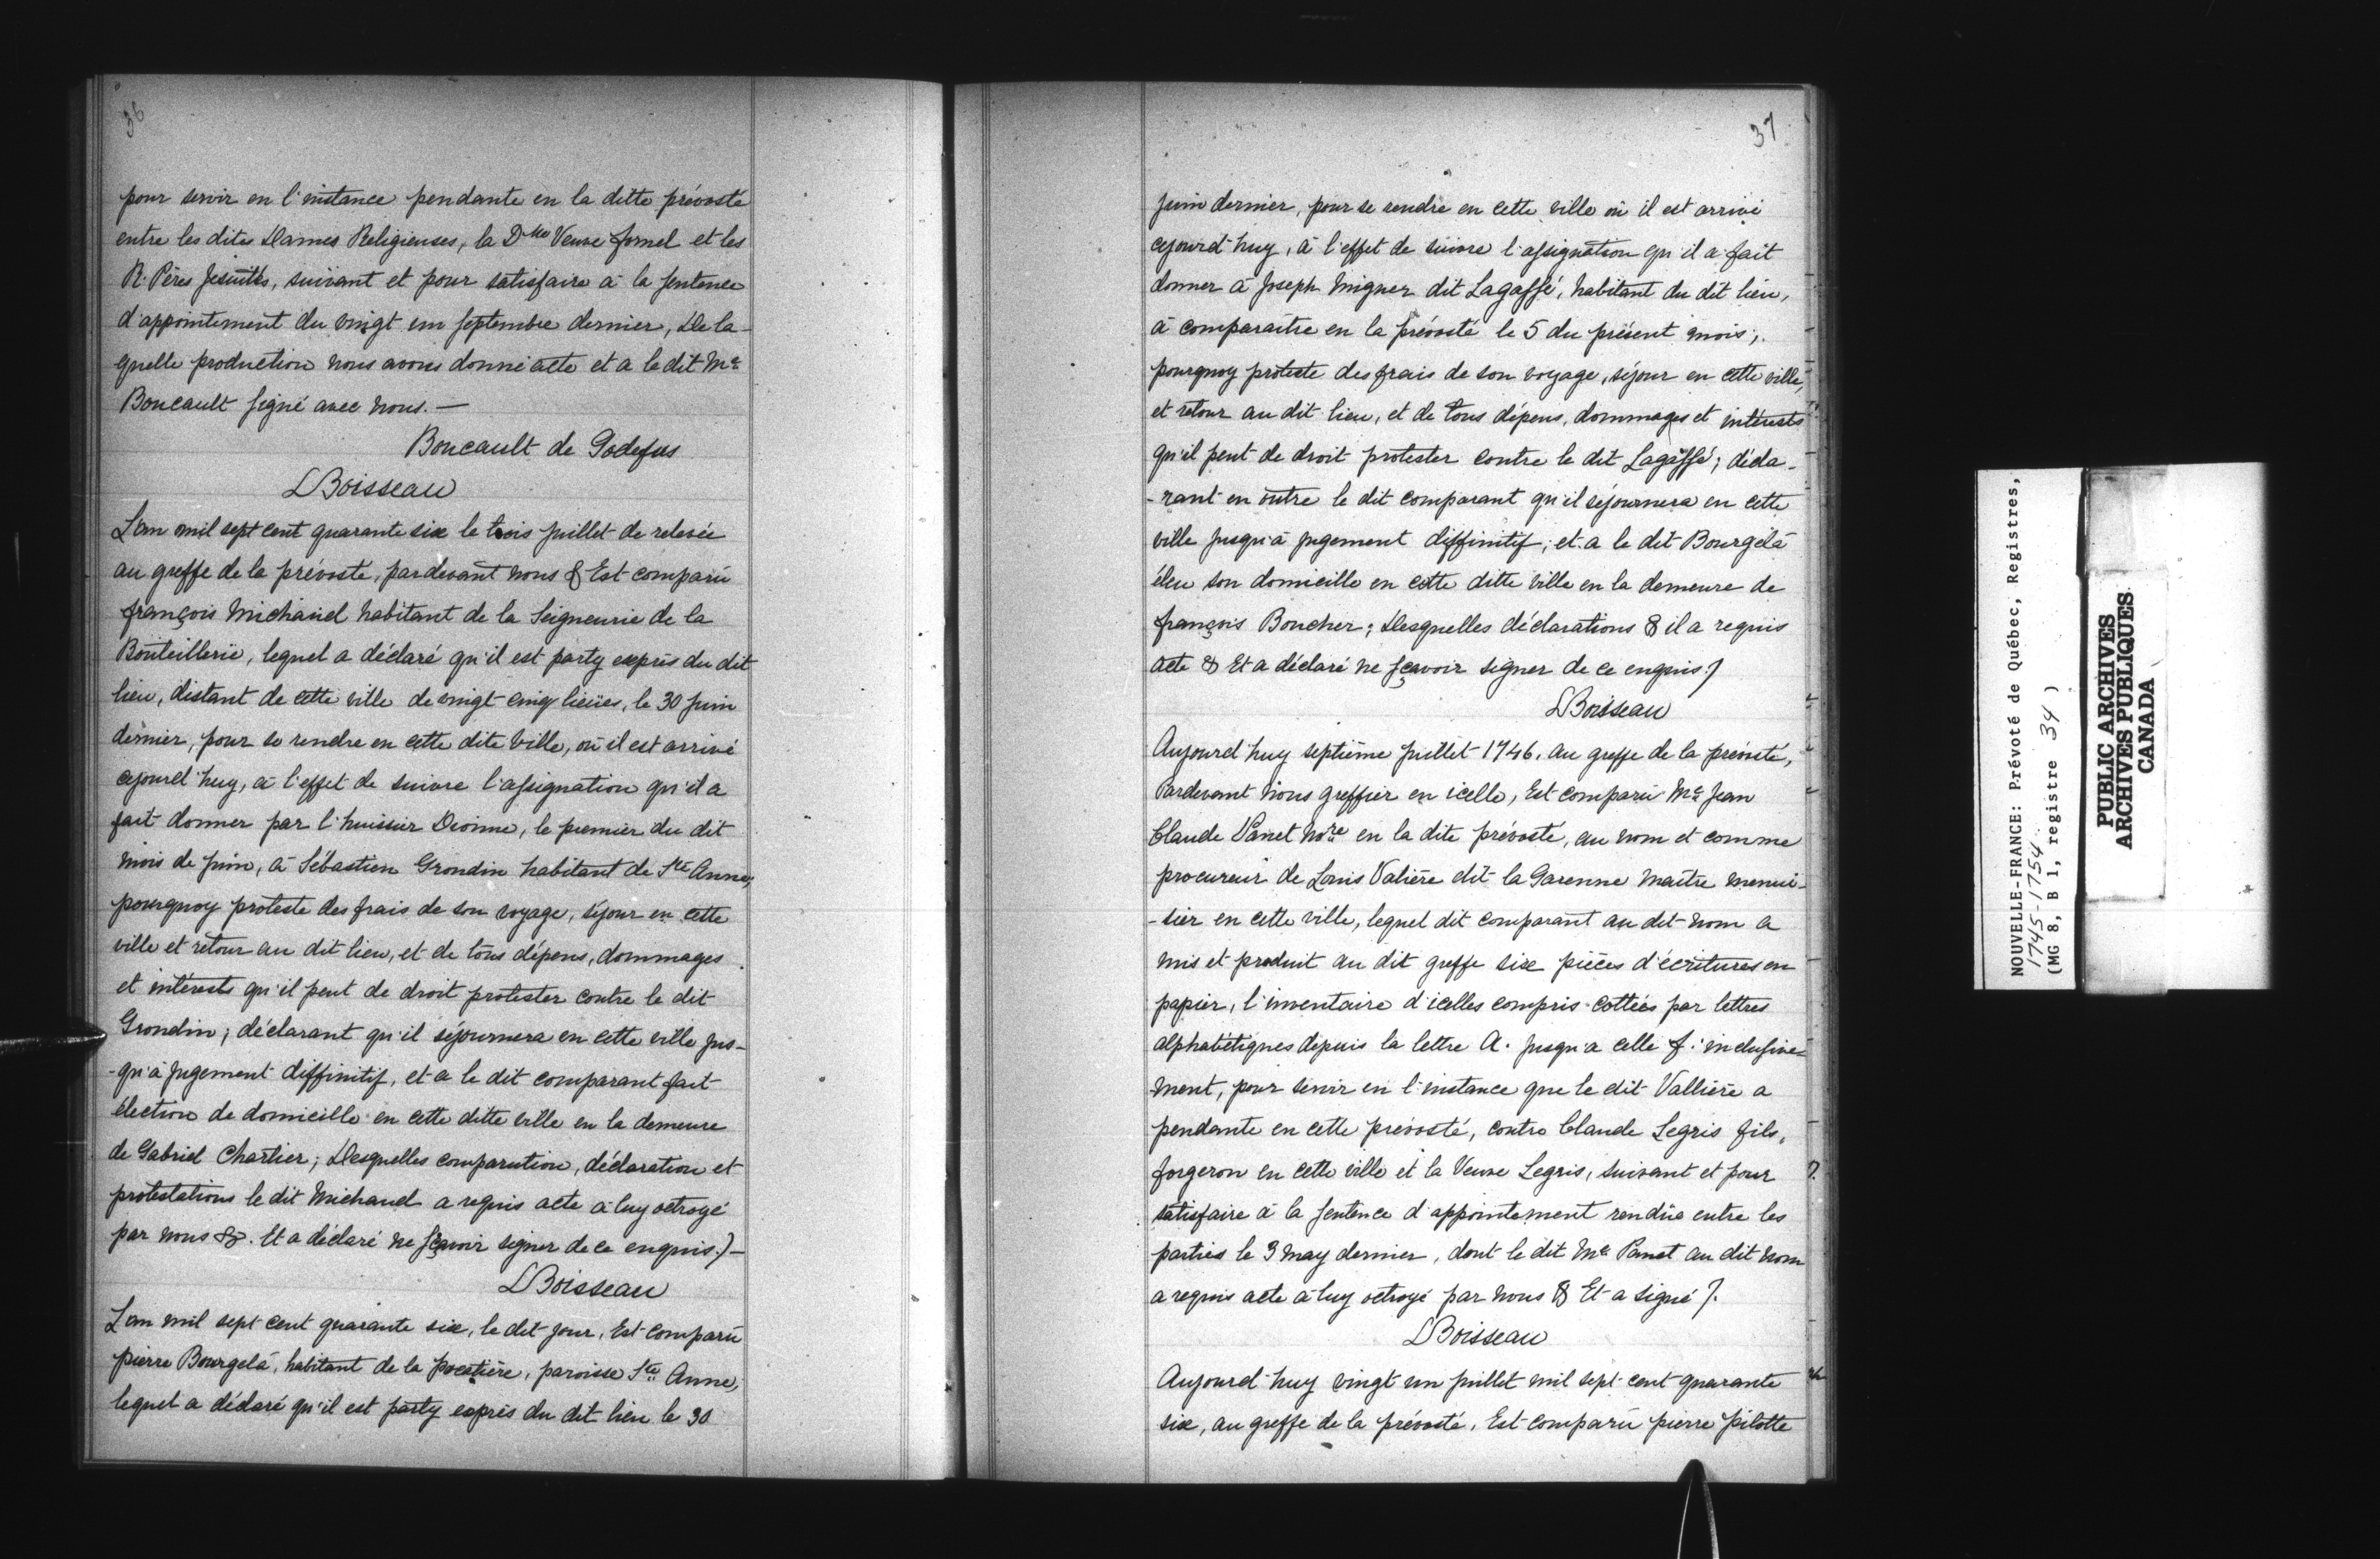 36
pour servir en l'instance pendante en la ditte prévosté
entre les dites Dames Religieuses, la Dlle Veuve fornel et les
R. Pères Jesuittes, suivant et pour satisfaire à la sentence
d'appointement du vingt un septembre dernier, De la-
quelle production nous avons donné acte et a le dit Me
Boucault signé avec nous. —
Boucault de Godefus
LBoisseau
L'an mil sept cent quarante six le trois juillet de relevée
au greffe de la prévosté, pardevant nous & Est comparu
françois Michaud habitant de la Seigneurie de la
Bouteillerie, lequel a déclaré qu'il est party exprès du dit
lieu, distant de cette ville de vingt cinq lieües, le 30 juin
dernier, pour se rendre en cette dite ville, où il est arrivé
cejourd'huy, à l'effet de suivre l'assignation qu'il a
fait donner par l'huissier Dionne, le premier du dit
mois de juin, à Sébastien Grondin habitant de Ste Anne,
pourquoy proteste des frais de son voyage, séjour en cette
ville et retour au dit lieu, et de tous dépens, dommages
et intérests qu'il peut de droit protester contre le dit
Grondin; déclarant qu'il séjournera en cette ville jus-
-qu'à jugement diffinitif, et a le dit comparant fait
élection de domicille en cette ditte ville en la demeure
de Gabriel Chartier; Desquelles comparution, déclaration et
protestations le dit Michaud a requis acte à luy octroyé
par nous &. Et a déclaré ne sçavoir signer de ce enquis./—
LBoisseau
L'an mil sept cent quarante six, le dit jour, Est comparu
pierre Bourgelá, habitant de la pocatière, paroisse Ste Anne,
lequel a déclaré qu'il est party exprès du dit lieu le 30
37
juin dernier, pour se rendre en cette ville où il est arrivé
cejourd'huy, à l'effet de suivre l'assignation qu'il a fait
donner à Joseph Migner dit Lagassé, habitant du dit lieu,
à comparaître en la prévosté le 5 du présent mois;
pourquoy proteste des frais de son voyage, séjour en cette ville,
et retour au dit lieu, et de tous dépens, dommages et intérests
qu'il peut de droit protester contre le dit Lagassé; décla-
-rant en outre le dit comparant qu'il séjournera en cette
ville jusqu'à jugement diffinitif; et a le dit Bourgelá
éleu son domicille en cette ditte ville en la demeure de
françois Boucher; Desquelles déclarations & il a requis
acte & Et a déclaré ne sçavoir signer de ce enquis./
LBoisseau
Aujourd'huy septième juillet 1746, au greffe de la prévosté,
Pardevant nous greffier en icelle, Est comparu Me Jean
Claude Panet nore en la dite prévosté, au nom et comme
procureur de Louis Valière dit la Garenne maître menui-
-sier en cette ville, lequel dit comparant au dit nom a
mis et produit au dit greffe six pièces d'écritures en
papier, l'inventaire d'icelles compris cottées par lettres
alphabétiques depuis la lettre A. jusqu'a celle f. inclusive-
ment, pour servir en l'instance que le dit Vallière a
pendante en cette prévosté, contre Claude Legris fils,
forgeron en cette ville et la Veuve Legris, suivant et pour
satisfaire à la sentence d'appointement rendüe entre les
parties le 3 may dernier, dont le dit Me Panet au dit nom
a requis acte à luy octroyé par nous & Et a signé /.
LBoisseau
Aujourd'huy vingt un juillet mil sept cent quarante
six, au greffe de la prévosté, Est comparu pierre pilotte
NOUVELLE-FRANCE: Prévoté de Québec, Registres,
1745-1754
(MG 8, B 1, registre 34 )
PUBLIC ARCHIVES
ARCHIVES PUBLIQUES
CANADA